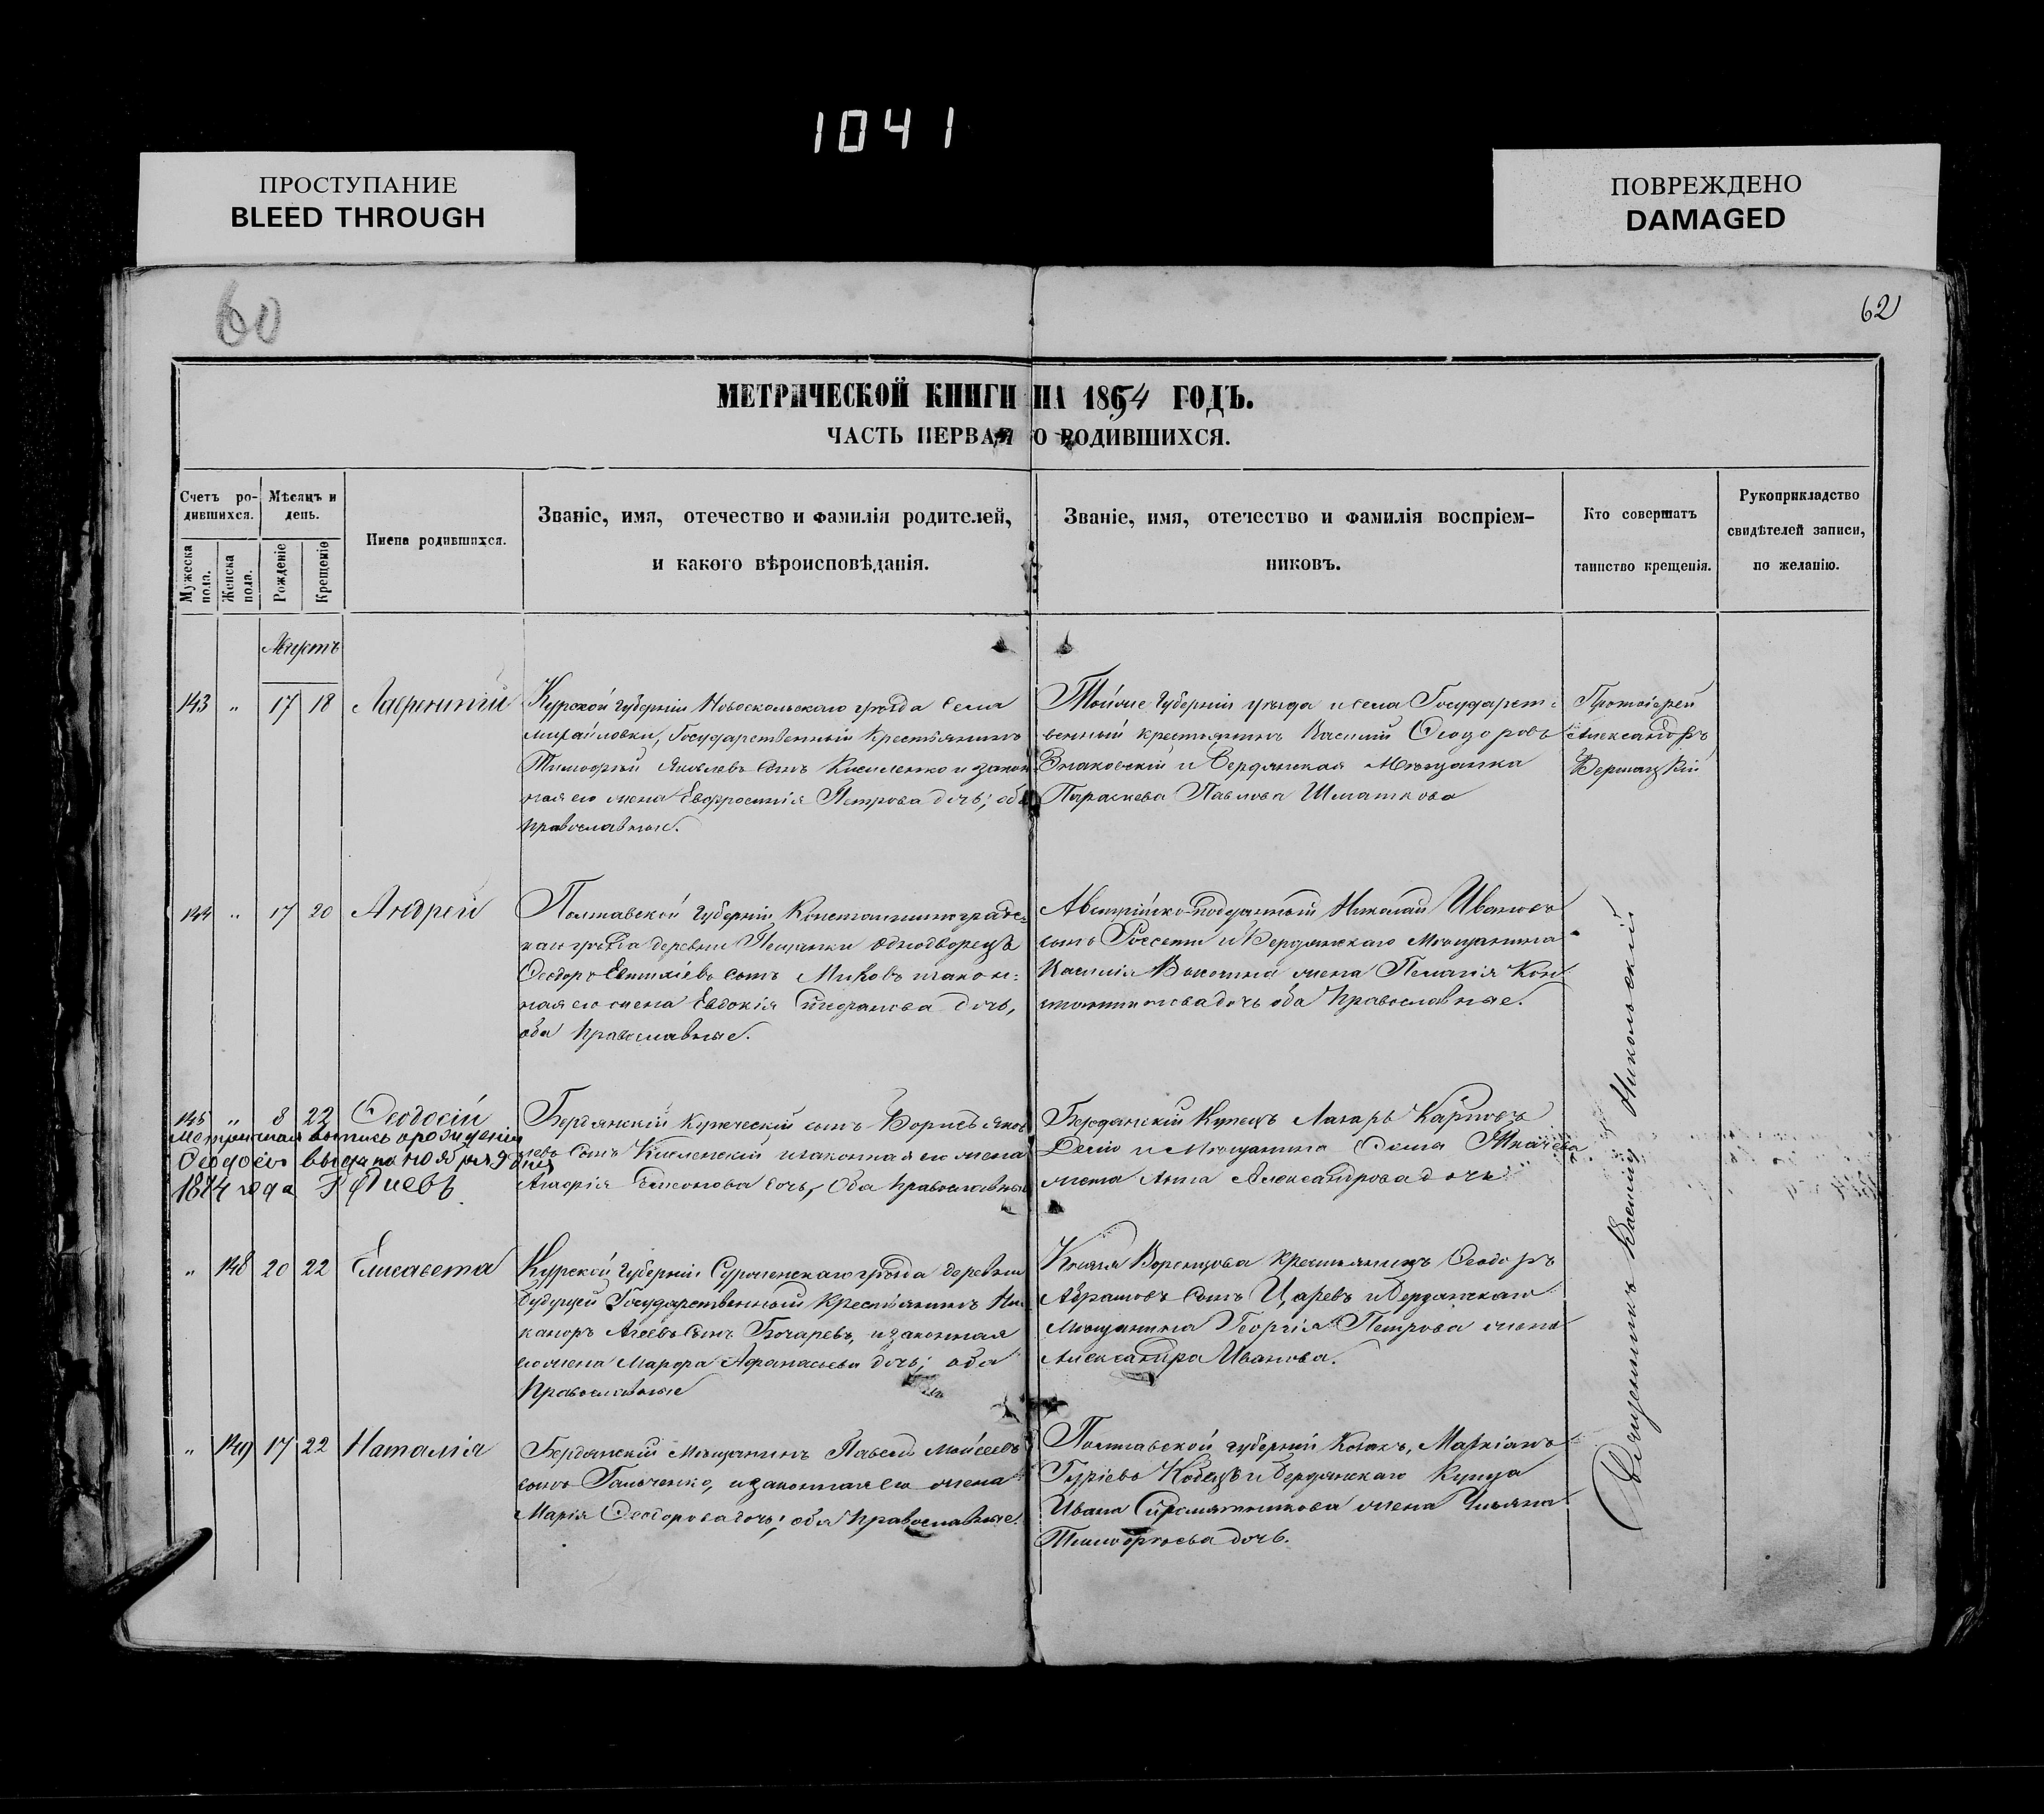 1041
ПРОСТУПАНИЕ
BLEED THROUGH
ПОВРЕЖДЕНО
DAMAGED
60
62
МЕТРИЧЕСКОЙ КНИГИ НА 1864 ГОДЪ.
ЧАСТЬ ПЕРВАЯ О РОДИВШИХСЯ.
Счетъ ро-
дившихся.
Мужеска
пола.
Женска
пола.
Мѣсяцъ и
день.
Рожденіе
Крещеніе
Имена родившихся.
Званіе, имя, отечество и фамилія родителей,
и какого вѣроисповѣданія.
Званіе, имя, отечество и фамилія воспріем-
никовъ.
Кто совершатъ
таинство крещенія.
Рукоприкладство
свидѣтелей записи,
по желанію.
Августъ
143 " 17 18 Лаврентій
Курской Губерніи Новоскольскаго уѣзда села
Михайловки, Государственный Крестьянинъ
Тимофей Яковлевъ сынъ Киселенко и закон
ная его жена Евфросинія Петрова дочь; оба
православные.
Тойже Губерніи уѣзда и села Государст-
венный крестьянинъ Василій Ѳеодоровъ
и Бердянская Мѣщанка
Параскева Павлова Шматкова
Протоіерей
Александръ
144 " 17 20 Андрей
Полтавской Губерніи Константиноградс-
каго уѣзда деревни Пещанки однодворецъ
Ѳеодоръ сынъ и закон-
ная его жена Евдокія Стефанова дочь,
оба Православные.
Австрійско-подданный Николай Ивановъ
сынъ Россети и Бердянскаго Мѣщанина
Василія жена Пелагія Кон
стантинова дочь оба Православные.
145 " 8 22 Ѳеодосій
Метричная выпись о рожденіи
Ѳеодосія выдана ноября 9 дня
1874 года
Бердянскій Купеческій сынъ Борисъ Яков
левъ сынъ Киселевскій и законная его жена
Симеонова дочь, Оба Православные
Бердянскій Купецъ Лазарь Карповъ
и Мѣщанина Ткачева
жена Анна Александрова дочь
" 148 20 22 Елисавета
Курской Губерніи уѣзда деревни
Государственный Крестьянинъ Ни
каноръ Агеевъ сынъ Бочаревъ, и законная
его жена Марфа Афанасьева дочь; оба
Православные
Князя Воронцова Крестьянинъ Ѳеодоръ
Абрамовъ сынъ Царевъ и Бердянскаго
Мѣщанина Георгія Петрова жена
Александра Иванова.
" 149 17 22 Наталія
Бердянскій Мѣщанинъ Павелъ Мойсеевъ
сынъ Гальченко, и законная его жена
Марія Ѳеодорова дочь; оба Православные.
Полтавской губерніи Козакъ, Маркіанъ
Гуріевъ и Бердянскаго Купца
Ивана Сыромятникова жена Ульяна
Тимофѣева дочь.
Священникъ Василій Никольскій